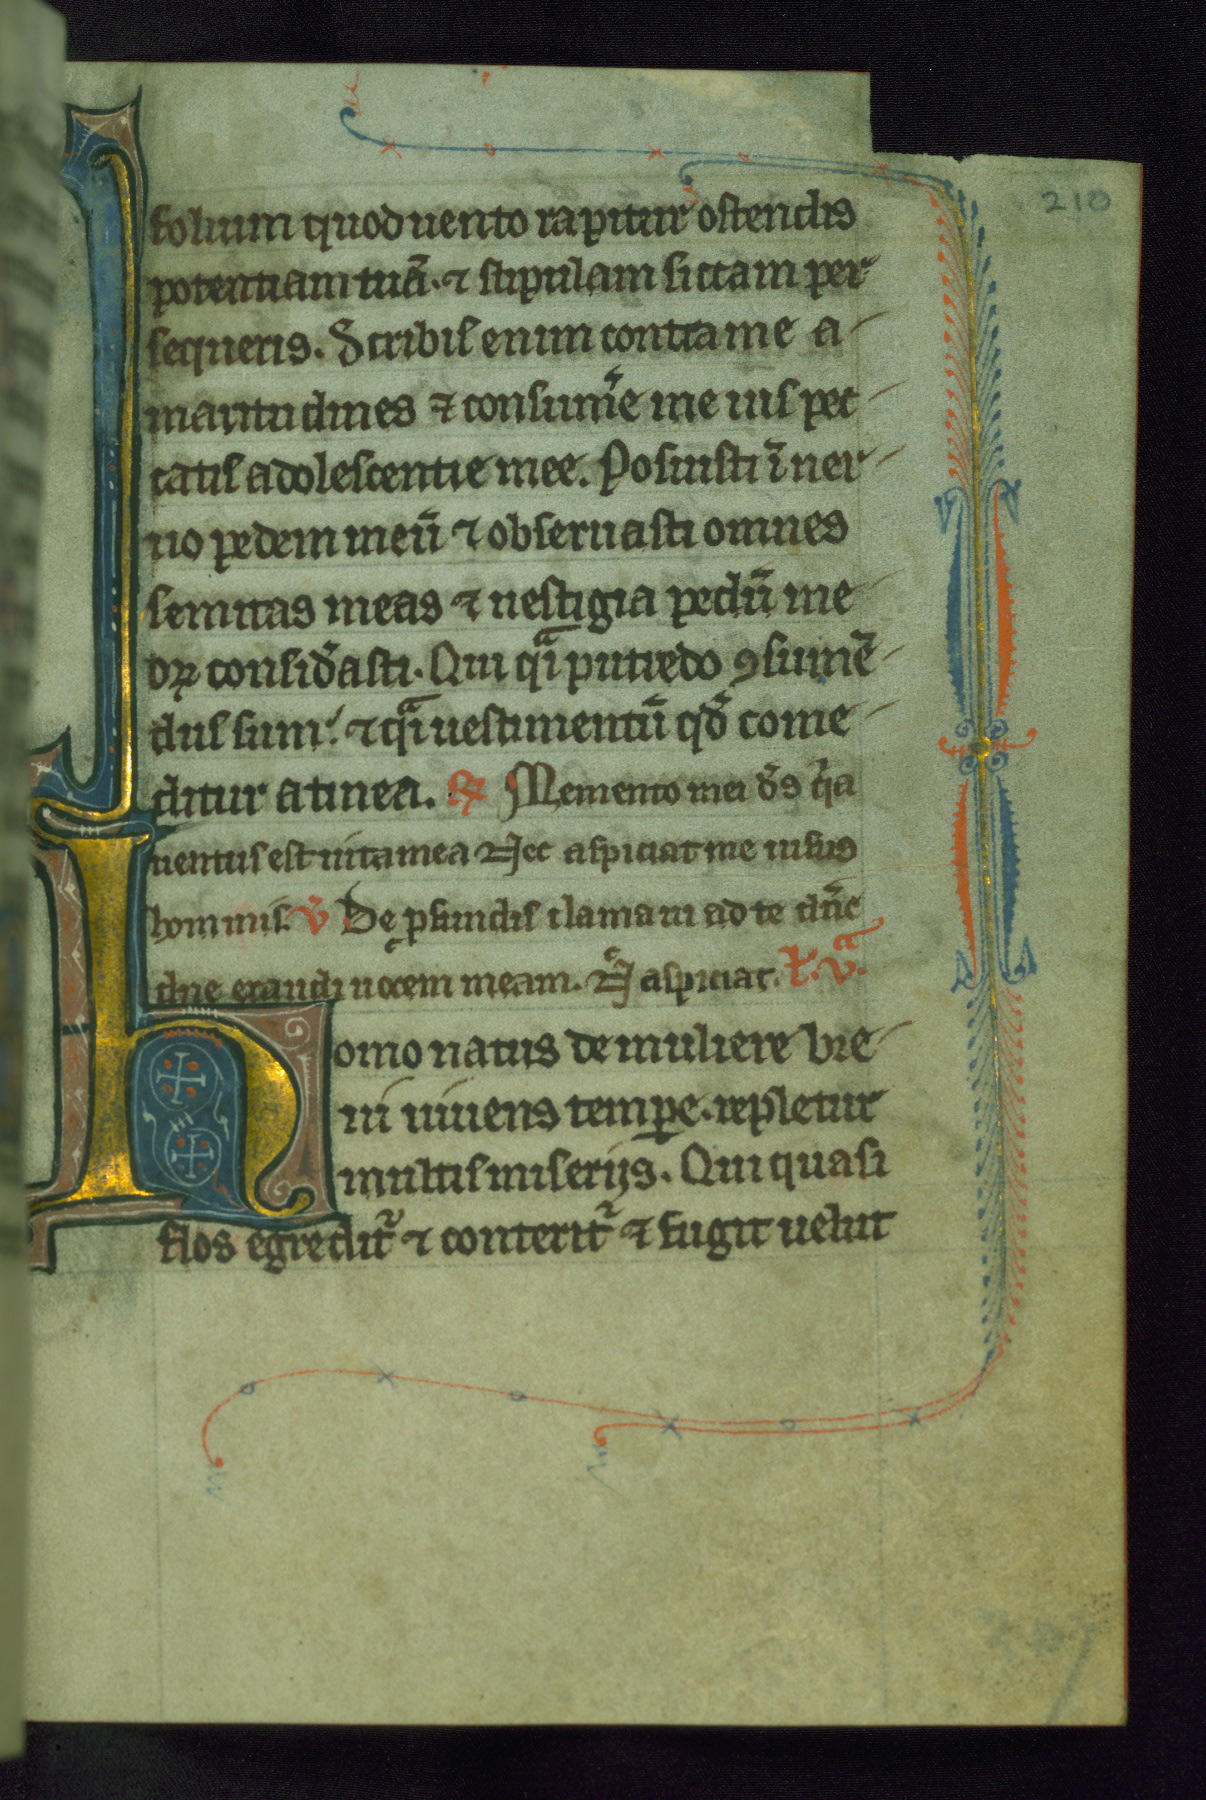 210
folium quod uento rapitur ostendis
potentiam tuā. ⁊ stipulam siccam per
sequeris. Scribis enim contra me a
maritudines ⁊ consum̄e me uis pec
catis adolescentie mee. Posuisti ī ner
uo pedem meū ⁊ obseruasti omnes
semitas meas ⁊ uestigia pedū me
oꝝ consid̄asti. Qui q̄i putredo ꝯsumē
dus sum. ⁊ q̄i uestimentū qd̄ come
ditur a tinea. R̄ Memento mei d̄s q̄a
uentus est uita mea Nec aspiciat me uisus
hominis. v̄ De ꝓfundis clamaui ad te dn̄e
dn̄e exaudi uocem meam. Nͨ aspiciat. l̄. vͣ.
homo natus de muliere bre
ui uiuens temꝑe. repletur
multis miserijs. Qui quasi
flos egredit᷑ ⁊ conterit᷑ ⁊ fugit uelut